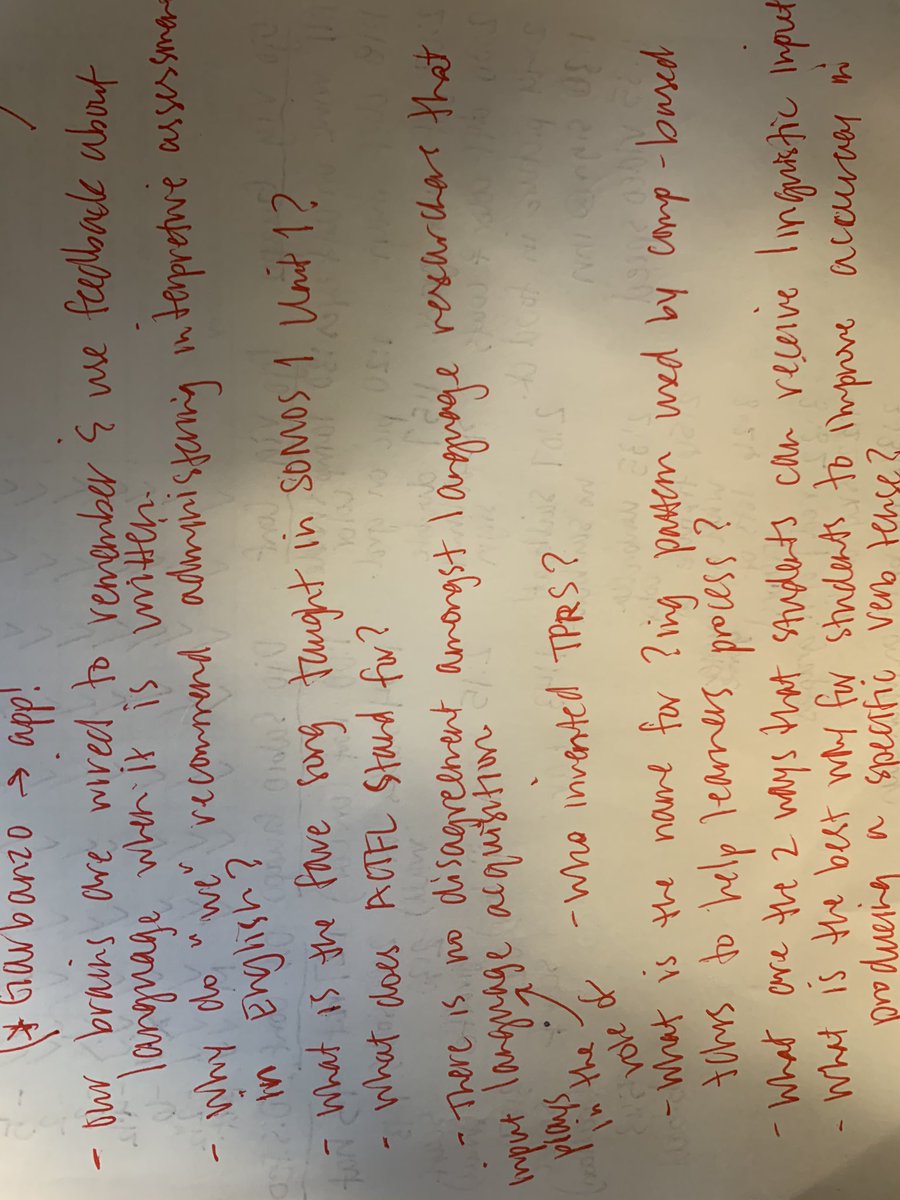 (* Garbanzo → app!
- Our brains are wired to remember & use feedback about
language when it is written.
- Why do "we" recommend administering interpretive assessmen
in English?
- What is the fave song taught in SOMOS 1 Unit 1?
- What does ACTFL stand for?
- There is no disagreement amongst language researchers that
input language acquisition
plays the role
in
- who invented TPRS?
- What is the name for ?ing pattern used by comp-based
to help learners process?
- What are the 2 ways that students can receive linguistic input
- What is the best way for students to improve accuracy in
producing a specific verb tense?